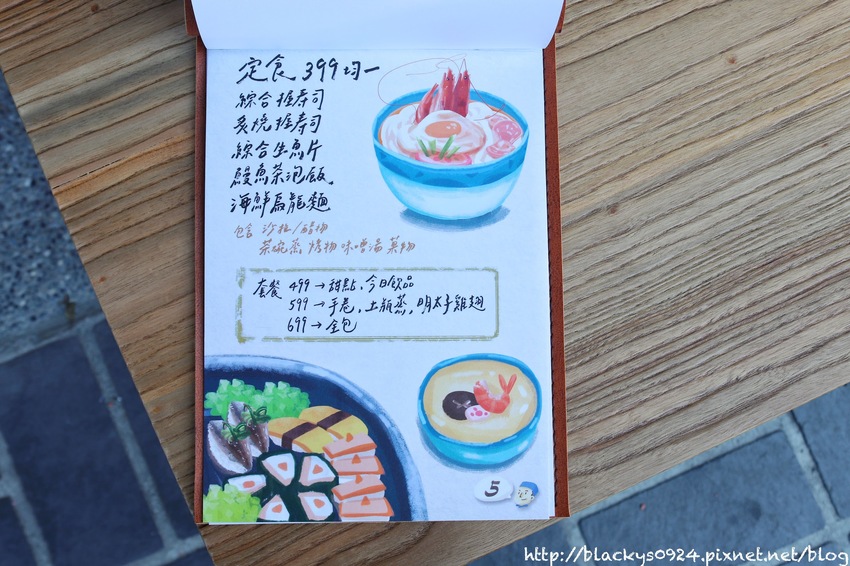 定食 399均一
綜合握壽司
炙燒握壽司
綜合生魚片
鰻魚茶泡飯
海鮮烏龍麵
包含 沙拉/醋物
茶碗蒸 烤物 味噌湯 菓物
套餐 499→甜點、今日飲品
599→手卷、土瓶蒸、明太子雞翅
699→全包
5
http://blackys0924.pixnet.net/blog